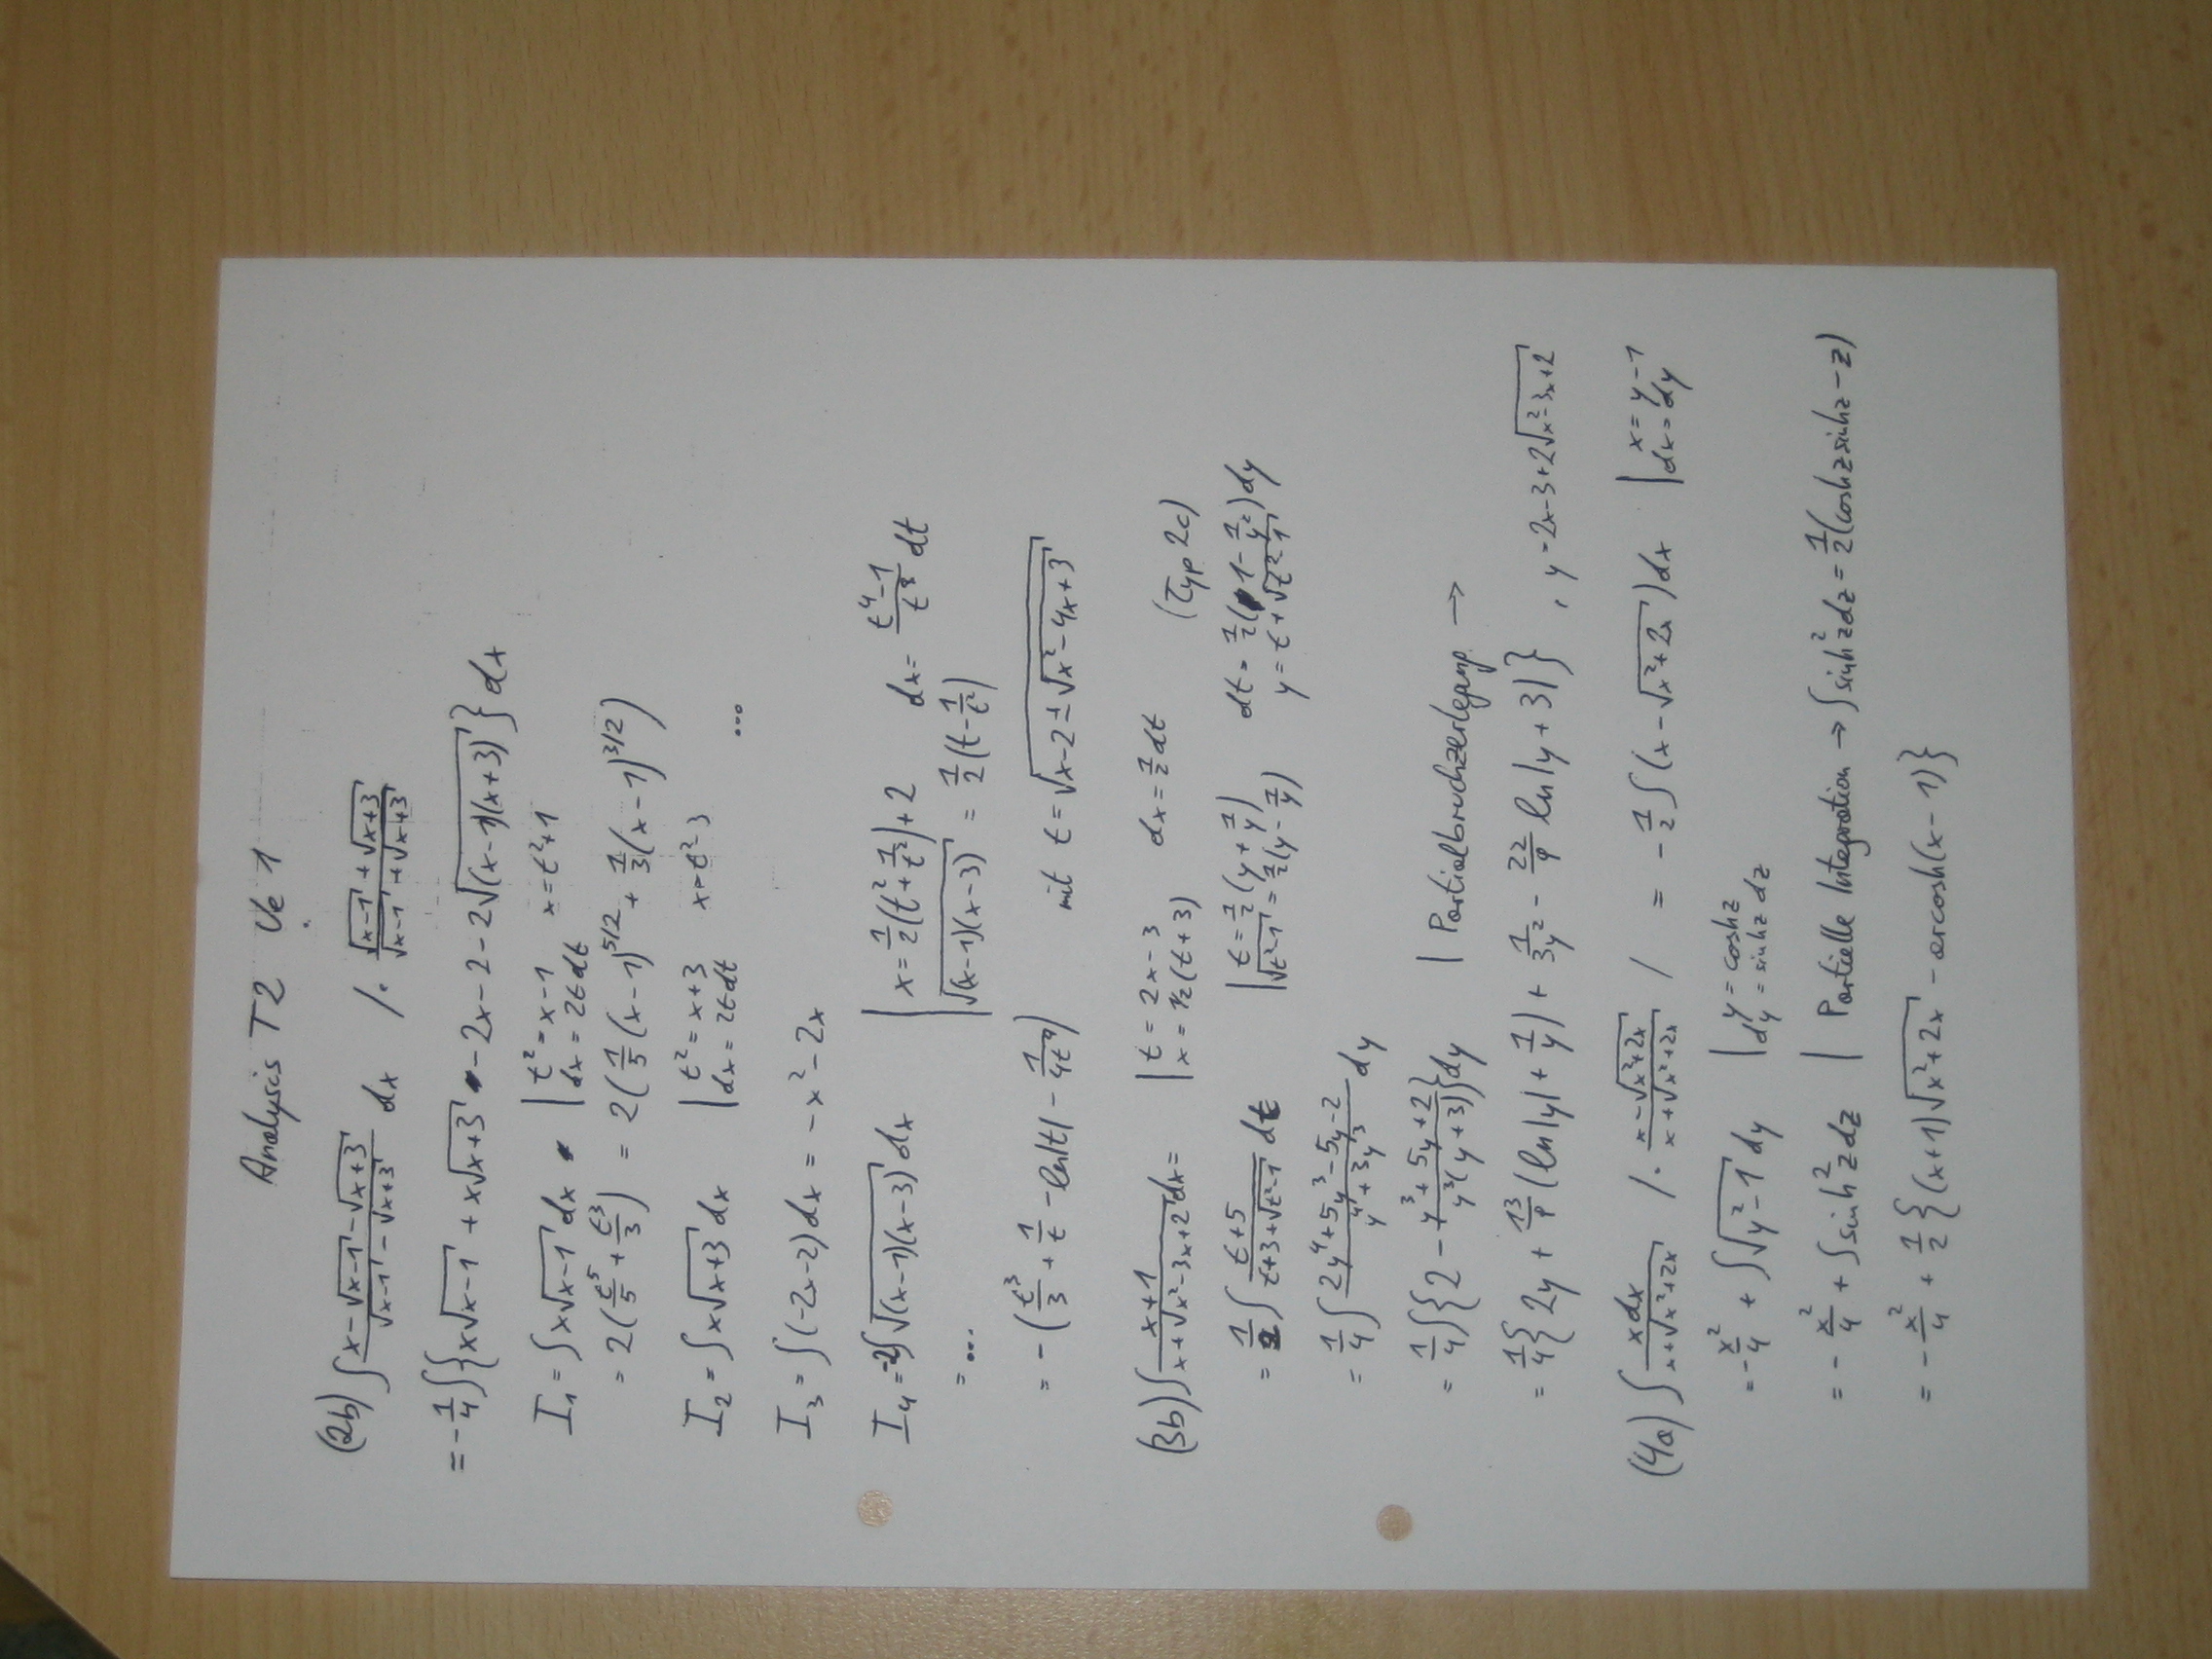 Analysis T2 Ue 1
(2b) ∫ (x - √(x-1) - √(x+3)) / (√(x-1) - √(x+3)) dx /· (√(x-1) + √(x+3)) / (√(x-1) + √(x+3))
= -1/4 ∫{x√(x-1) + x√(x+3) - 2x - 2 - 2√((x-1)(x+3))} dx
I₁ = ∫ x√(x-1) dx | t² = x-1 x = t²+1
dx = 2t dt
= 2(t⁵/5 + t³/3) = 2(1/5 (x-1)^5/2 + 1/3 (x-1)^3/2)
I₂ = ∫ x√(x+3) dx | t² = x+3 x = t²-3
dx = 2t dt ...
I₃ = ∫(-2x-2) dx = -x² - 2x
I₄ = -2∫√((x-1)(x-3)) dx | x = 1/2 (t² + 1/t²) + 2 dx = (t⁴-1)/t³ dt
= ... √((x-1)(x-3)) = 1/2 (t - 1/t²)
= -(t³/3 + 1/t - ln|t| - 1/4t⁴) mit t = √(x-2 ± √(x²-4x+3))
(3b) ∫ (x+1) / (x+√(x²-3x+2)) dx = | t = 2x-3 dx = 1/2 dt (Typ 2c)
x = 1/2 (t+3)
= 1/2 ∫ (t+5) / (t+3+√(t²-1)) dt | t = 1/2 (y + 1/y) dt = 1/2 (1 - 1/y²) dy
√(t²-1) = 1/2 (y - 1/y) y = t + √(t²-1)
= 1/4 ∫ (2y⁴+5y³-5y-2) / (y⁴+3y³) dy
= 1/4 ∫{2 - (y³+5y+2) / (y³(y+3))} dy | Partialbruchzerlegung →
= 1/4 {2y + 13/9 (ln|y| + 1/y) + 1/3y² - 22/9 ln|y+3|} , y = 2x-3+2√(x²-3x+2)
(4a) ∫ x dx / (x+√(x²+2x)) /· (x-√(x²+2x)) / (x+√(x²+2x)) / = -1/2 ∫(x-√(x²+2x)) dx | x = y-1
dx = dy
= -x²/4 + ∫√(y²-1) dy | y = cosh z
dy = sinh z dz
= -x²/4 + ∫ sinh² z dz | Partielle Integration → ∫ sinh² z dz = 1/2 (cosh z sinh z - z)
= -x²/4 + 1/2 {(x+1)√(x²+2x) - arcosh(x-1)}